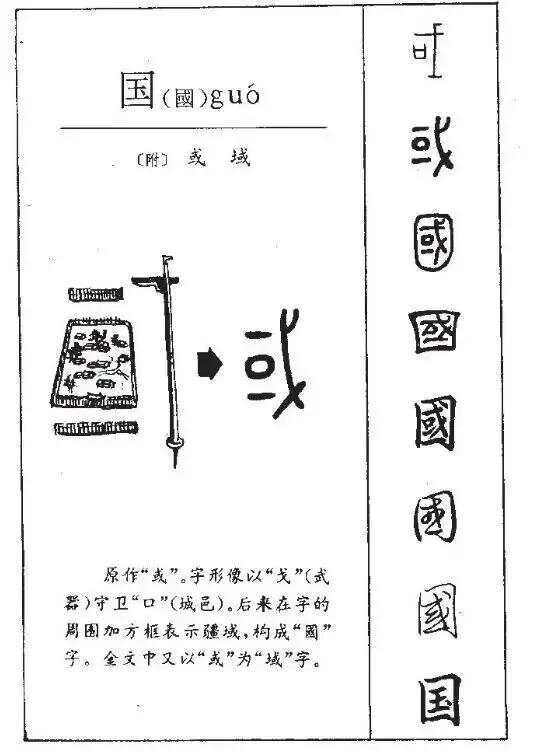 国(國)guó
〔附〕 或 域
原作“或”。字形像以“戈”(武
器)守卫“口”(城邑)。后来在字的
周围加方框表示疆域,构成“國”
字。金文中又以“或”为“域”字。
或
國
國
國
國
國
国